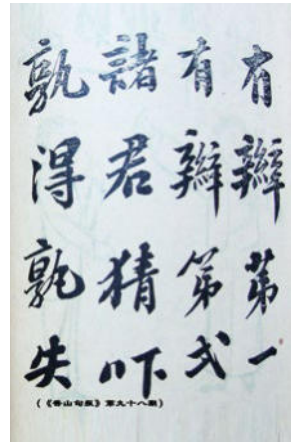 有辮第一
有辮第弍
諸君猜吓
孰得孰失
(《香山旬报》第九十八期)